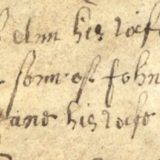 Ann his wife
sonn of John
ane his wife